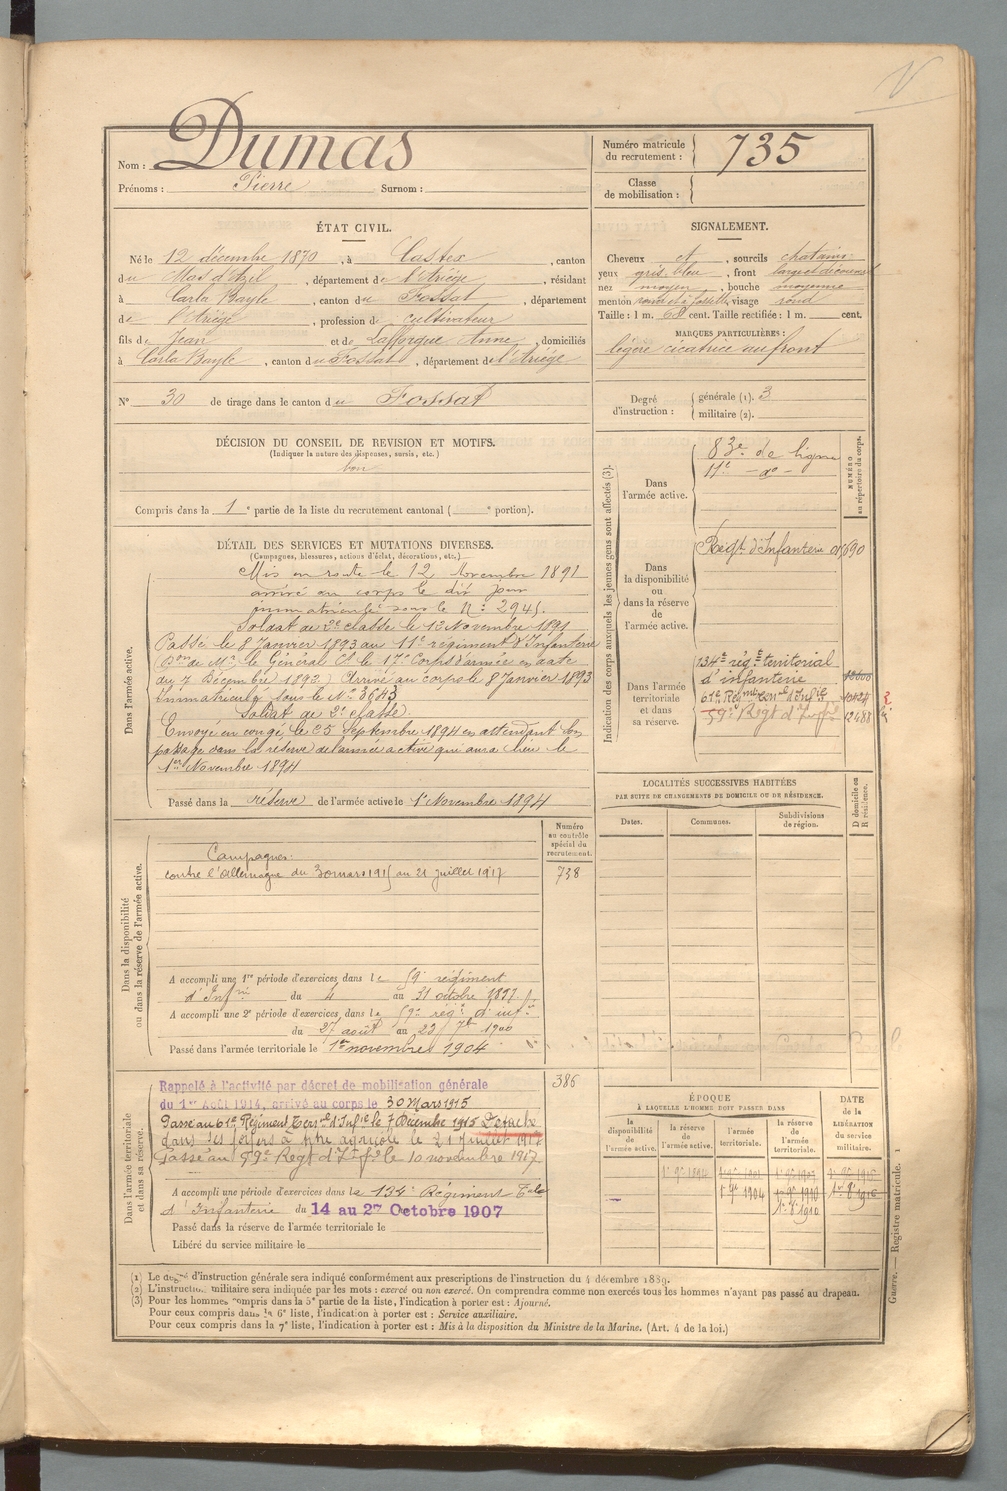 Nom : Dumas
Prénoms : Pierre Surnom :
Numéro matricule du recrutement : 735
Classe de mobilisation :
ÉTAT CIVIL.
Né le 12 décembre 1870, à Castex, canton
du Mas d'Azil, département de l'Ariège, résidant
à Carla Bayle, canton du Fossat, département
de l'Ariège, profession de cultivateur
fils de Jean et de Lafforgue Anne, domiciliés
à Carla Bayle, canton du Fossat, département de l'Ariège
N° 30 de tirage dans le canton du Fossat
SIGNALEMENT.
Cheveux et, sourcils chatains
yeux gris bleu, front large et découvert
nez moyen, bouche moyenne
menton rond et à fossette, visage rond
Taille : 1 m. 68 cent. Taille rectifiée : 1 m. cent.
MARQUES PARTICULIÈRES :
légère cicatrice au front
Degré d'instruction : générale (1). 3
militaire (2).
DÉCISION DU CONSEIL DE REVISION ET MOTIFS.
(Indiquer la nature des dispenses, sursis, etc.)
bon
Compris dans la 1e partie de la liste du recrutement cantonal ( e portion).
DÉTAIL DES SERVICES ET MUTATIONS DIVERSES.
(Campagnes, blessures, actions d'éclat, décorations, etc.)
Dans l'armée active.
Mis en route le 12 Novembre 1891
arrivé au corps le dit jour
immatriculé sous le N° 2945.
Soldat de 2e classe le 12 Novembre 1891
Passé le 8 Janvier 1893 au 11e régiment d'Infanterie
(Don de Mr. le Général Ct le 17e Corps d'armée en date
du 7 Décembre 1892.) Arrivé au corps le 8 Janvier 1893
Immatriculé sous le No 3643
Soldat de 2e classe.
Envoyé en congé le 25 Septembre 1894 en attendant son
passage dans la réserve de l'armée active qui aura lieu le
1er Novembre 1894
Passé dans la réserve de l'armée active le 1er Novembre 1894
Indication des corps auxquels les jeunes gens sont affectés (3).
NUMÉRO au répertoire du corps.
Dans l'armée active.
83e de ligne
11e - do -
Dans la disponibilité ou dans la réserve de l'armée active.
Régt d'Infanterie
Dans l'armée territoriale et dans sa réserve.
134e régt territorial
d'infanterie
61e Régiment Terrial d'Infie
59e Regt d'Inffie 12488
LOCALITÉS SUCCESSIVES HABITÉES
PAR SUITE DE CHANGEMENTS DE DOMICILE OU DE RÉSIDENCE.
Dates. Communes. Subdivisions de région.
D domicile ou R résidence.
Dans la disponibilité ou dans la réserve de l'armée active.
Numéro au contrôle spécial du recrutement.
738
Campagnes.
contre l'Allemagne du 30 mars 1915 au 21 juillet 1917
A accompli une 1re période d'exercices dans le 59e régiment
d'Infrie du 4 au 31 octobre 1897
A accompli une 2e période d'exercices dans le 59e régt d'inftie
du 27 août au 23 7bre 1900
Passé dans l'armée territoriale le 1er novembre 1904
Dans l'armée territoriale et dans sa réserve.
386
Rappelé à l'activité par décret de mobilisation générale
du 1er Août 1914, arrivé au corps le 30 Mars 1915
Passé au 61e Régiment Terrial d'Infie le 7 Décembre 1915 Détaché
agricole le 21 Juillet 1917
Passé au 59e Regt d'Inffie le 10 novembre 1917
A accompli une période d'exercices dans le 134e Régiment Tal
d'Infanterie du 14 au 27 Octobre 1907
Passé dans la réserve de l'armée territoriale le
Libéré du service militaire le
ÉPOQUE
À LAQUELLE L'HOMME DOIT PASSER DANS
la disponibilité de l'armée active. la réserve de l'armée active. l'armée territoriale. la réserve de l'armée territoriale.
DATE de la LIBÉRATION du service militaire.
1er 9bre 1894
1er 9bre 1904
(1) Le degré d'instruction générale sera indiqué conformément aux prescriptions de l'instruction du 4 décembre 1889.
(2) L'instruction militaire sera indiquée par les mots : exercé ou non exercé. On comprendra comme non exercés tous les hommes n'ayant pas passé au drapeau.
(3) Pour les hommes compris dans la 5e partie de la liste, l'indication à porter est : Ajourné.
Pour ceux compris dans la 6e liste, l'indication à porter est : Service auxiliaire.
Pour ceux compris dans la 7e liste, l'indication à porter est : Mis à la disposition du Ministre de la Marine. (Art. 4 de la loi.)
Guerre. — Registre matricule. 1